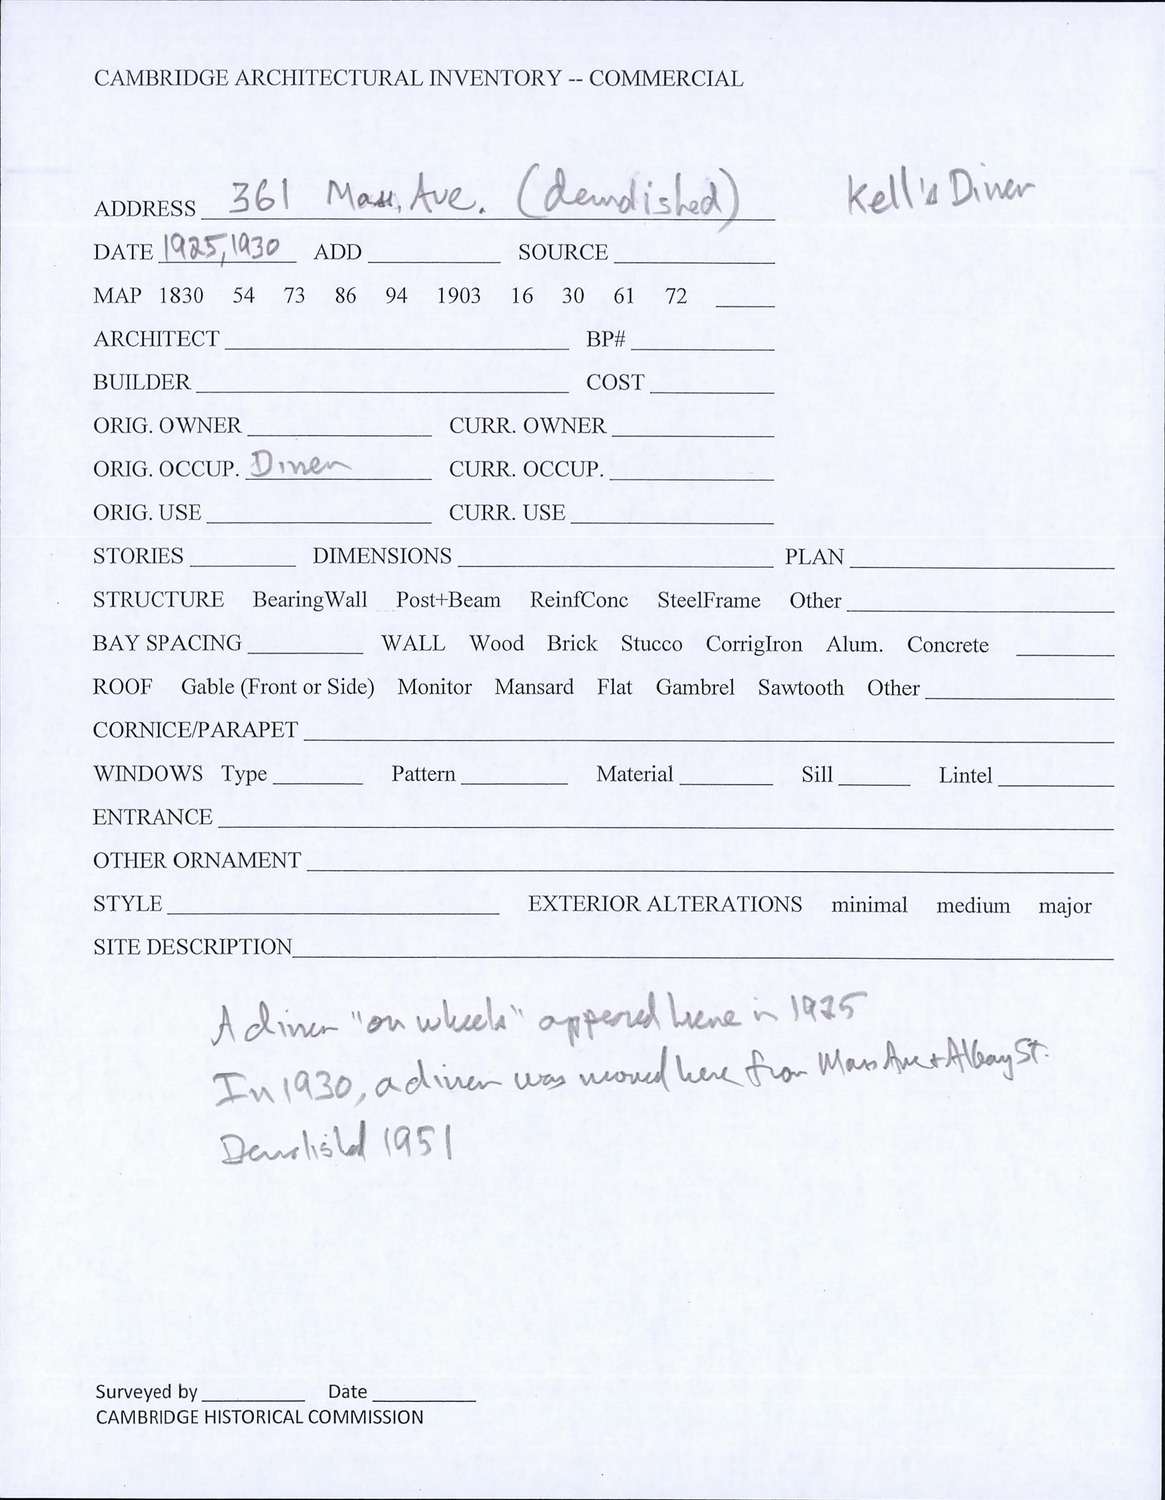 CAMBRIDGE ARCHITECTURAL INVENTORY -- COMMERCIAL
Kell's Diner
ADDRESS 361 Mass. Ave. (demolished)
DATE 1925, 1930 ADD SOURCE
MAP 1830 54 73 86 94 1903 16 30 61 72
ARCHITECT BP#
BUILDER COST
ORIG. OWNER CURR. OWNER
ORIG. OCCUP. Diner CURR. OCCUP.
ORIG. USE CURR. USE
STORIES DIMENSIONS PLAN
STRUCTURE BearingWall Post+Beam ReinfConc SteelFrame Other
BAY SPACING WALL Wood Brick Stucco CorrigIron Alum. Concrete
ROOF Gable (Front or Side) Monitor Mansard Flat Gambrel Sawtooth Other
CORNICE/PARAPET
WINDOWS Type Pattern Material Sill Lintel
ENTRANCE
OTHER ORNAMENT
STYLE EXTERIOR ALTERATIONS minimal medium major
SITE DESCRIPTION
A diner "on wheels" appered here in 1925
In 1930, a diner was moved here from Mass Ave + Albany St.
Demolished 1951
Surveyed by Date
CAMBRIDGE HISTORICAL COMMISSION